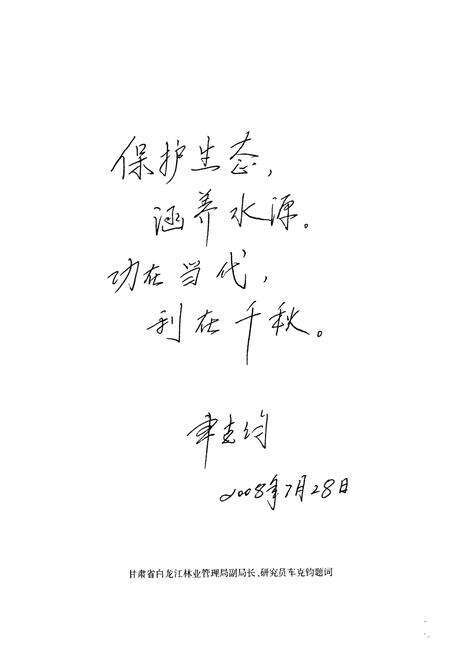 保护生态，
涵养水源。
功在当代，
利在千秋。
车克钧
2008年7月28日
甘肃省白龙江林业管理局副局长、研究员车克钧题词